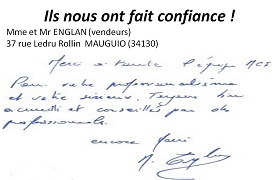 Ils nous ont fait confiance !
Mme et Mr ENGLAN (vendeurs)
37 rue Ledru Rollin MAUGUIO (34130)
Merci à toute l'équipe
Pour votre professionnalisme
et votre sérieux. Toujours bien
accueillis et conseillés par des
professionnels.
encore merci